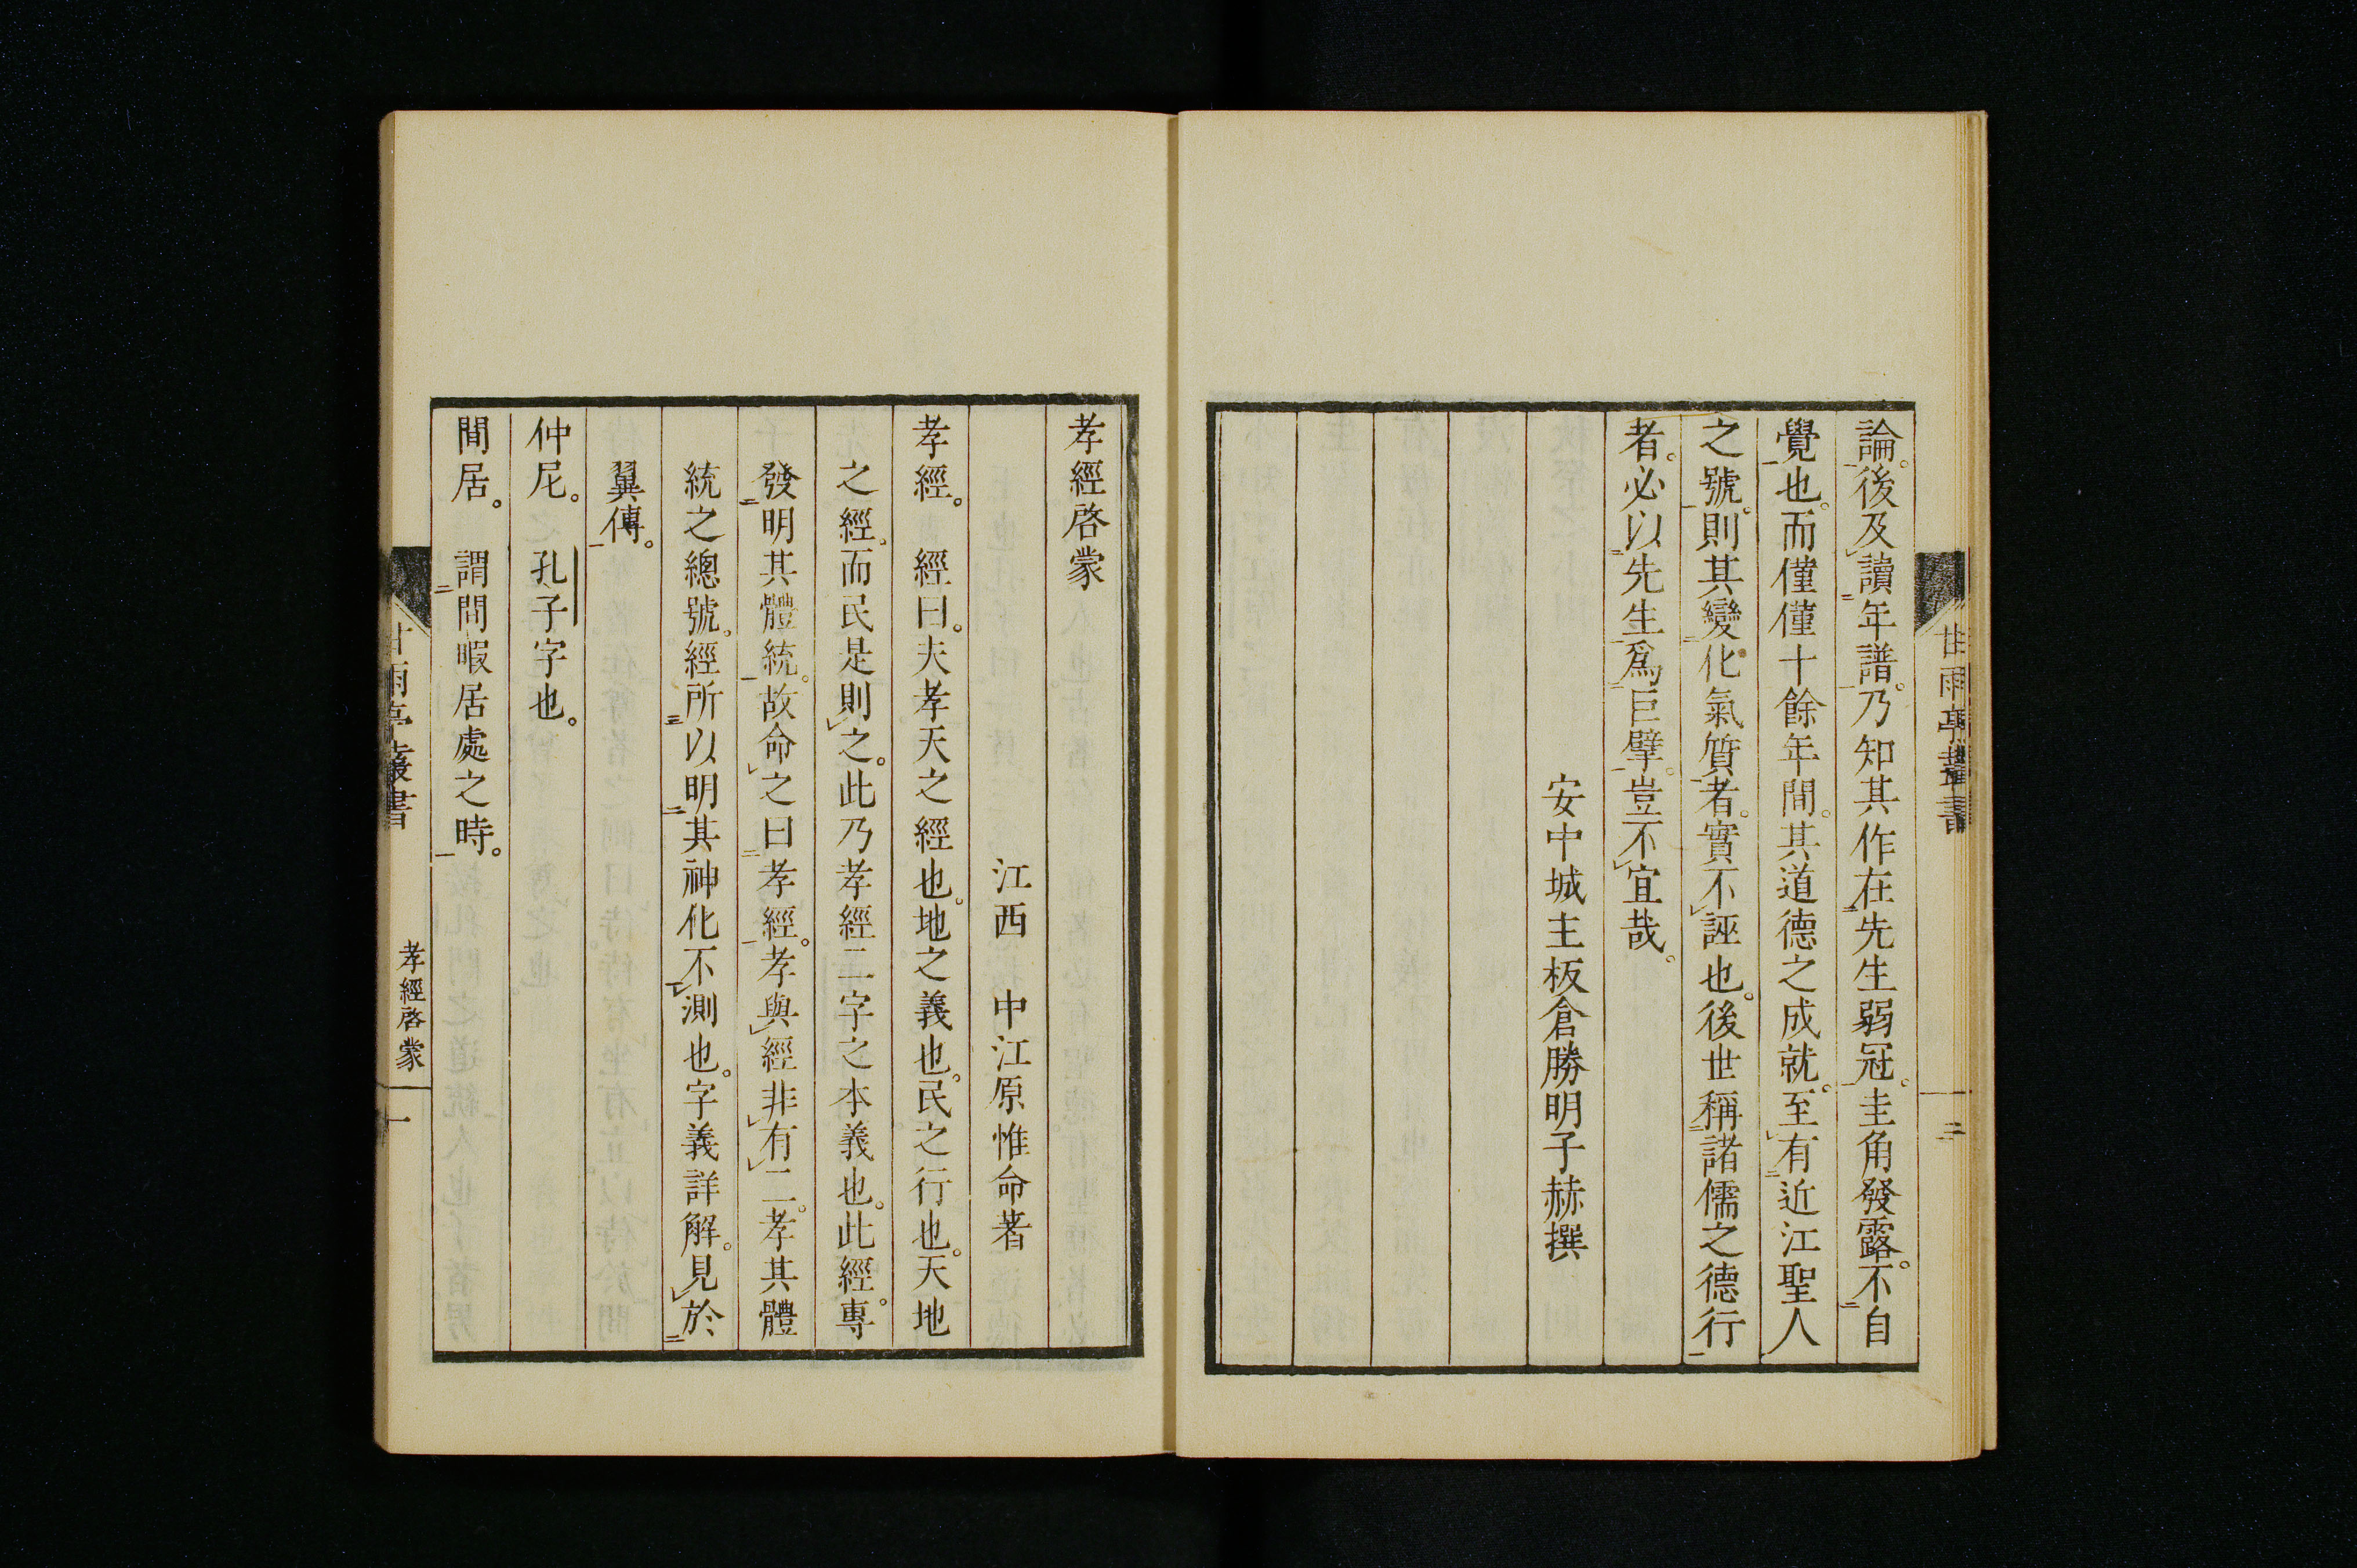 甘雨亭叢書
二
論。後及讀年譜。乃知其作在先生弱冠。圭角發露。不自
覺也。而僅僅十餘年間。其道德之成就。至有近江聖人
之號。則其變化氣質者。實不誣也。後世稱諸儒之德行
者。必以先生爲巨擘。豈不宜哉。
安中城主板倉勝明子赫撰
孝經啓蒙
江西 中江原惟命著
孝經。 經曰。夫孝天之經也。地之義也。民之行也。天地
之經。而民是則之。此乃孝經二字之本義也。此經。專
發明其體統。故命之曰孝經。孝與經非有二。孝其體
統之總號。經所以明其神化不測也。字義詳解。見於
翼傳。
仲尼。 孔子字也。
閒居。 謂閒暇居處之時。
甘雨亭叢書
孝經啓蒙
一